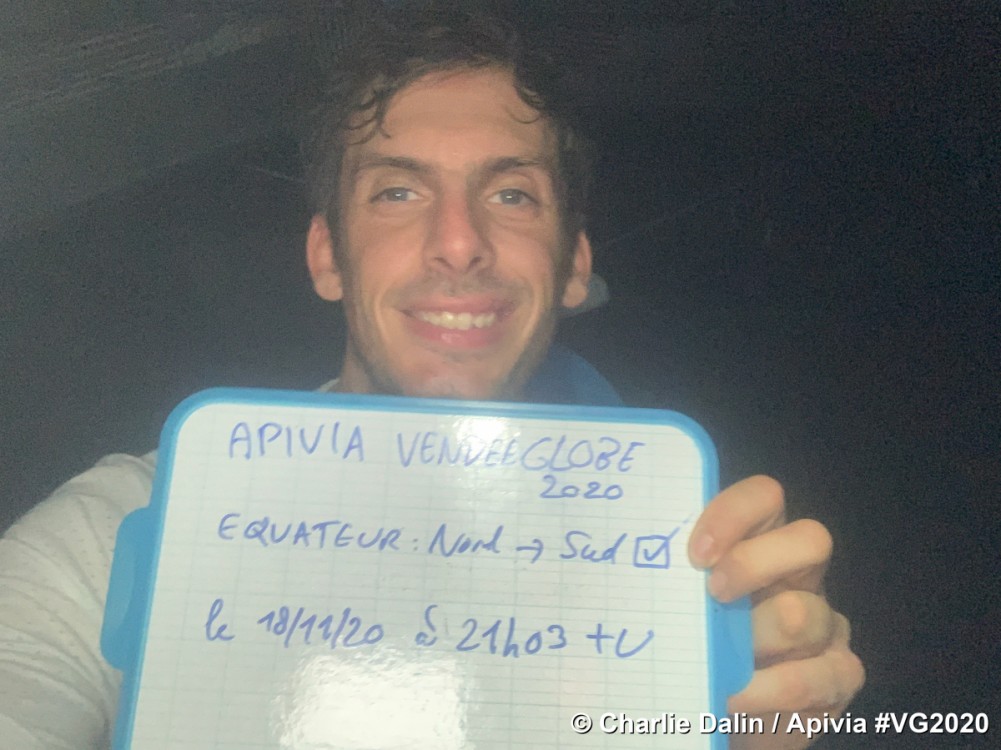 APIVIA VENDEEGLOBE
2020
EQUATEUR : Nord → Sud ☑
le 18/11/20 à 21h03 +U
© Charlie Dalin / Apivia #VG2020